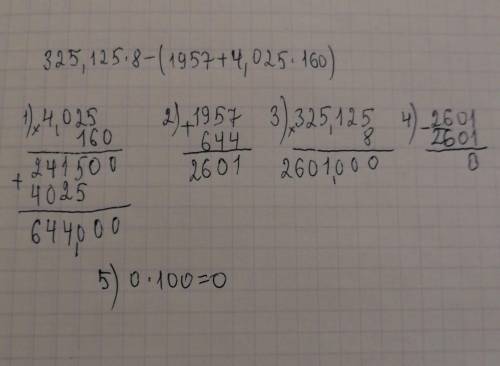 325,125·8-(1957+4,025·160)
1) 4,025
× 160
241500
+ 4025
644,000
2) 1957
+ 644
2601
3) 325,125
× 8
2601,000
4) 2601
- 2601
0
5) 0·100=0